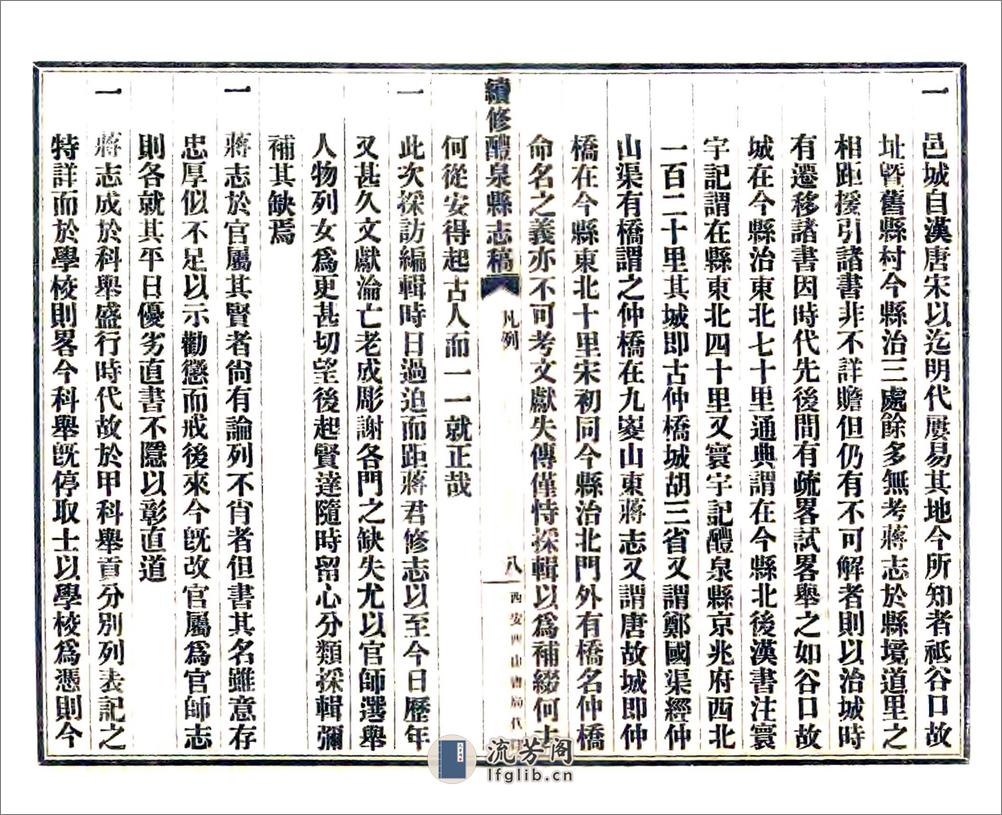 一 邑城自漢唐宋以迄明代屢易其地今所知者祗谷口故
址曁舊縣村今縣治三處餘多無考蔣志於縣境道里之
相距援引諸書非不詳贍但仍有不可解者則以治城時
有遷移諸書因時代先後間有疏畧試畧舉之如谷口故
城在今縣治東北七十里通典謂在今縣北後漢書注寰
宇記謂在縣東北四十里又寰宇記醴泉縣京兆府西北
一百二十里其城即古仲橋城胡三省又謂鄭國渠經仲
山渠有橋謂之仲橋在九嵏山東蔣志又謂唐故城即仲
橋在今縣東北十里宋初同今縣治北門外有橋名仲橋
命名之義亦不可考文獻失傳僅恃採輯以爲補綴何去
何從安得起古人而一一就正哉
續修醴泉縣志稿 凡例 八 西安西山書局代印
一 此次採訪編輯時日過迫而距蔣君修志以至今日歷年
又甚久文獻淪亡老成彫謝各門之缺失尤以官師選舉
人物列女爲更甚切望後起賢達隨時留心分類採輯彌
補其缺焉
一 蔣志於官屬其賢者尙有論列不肖者但書其名雖意存
忠厚似不足以示勸懲而戒後來今旣改官屬爲官師志
則各就其平日優劣直書不隱以彰直道
一 蔣志成於科舉盛行時代故於甲科舉貢分別列表記之
特詳而於學校則畧今科舉旣停取士以學校爲憑則今
流芳阁
lfglib.cn